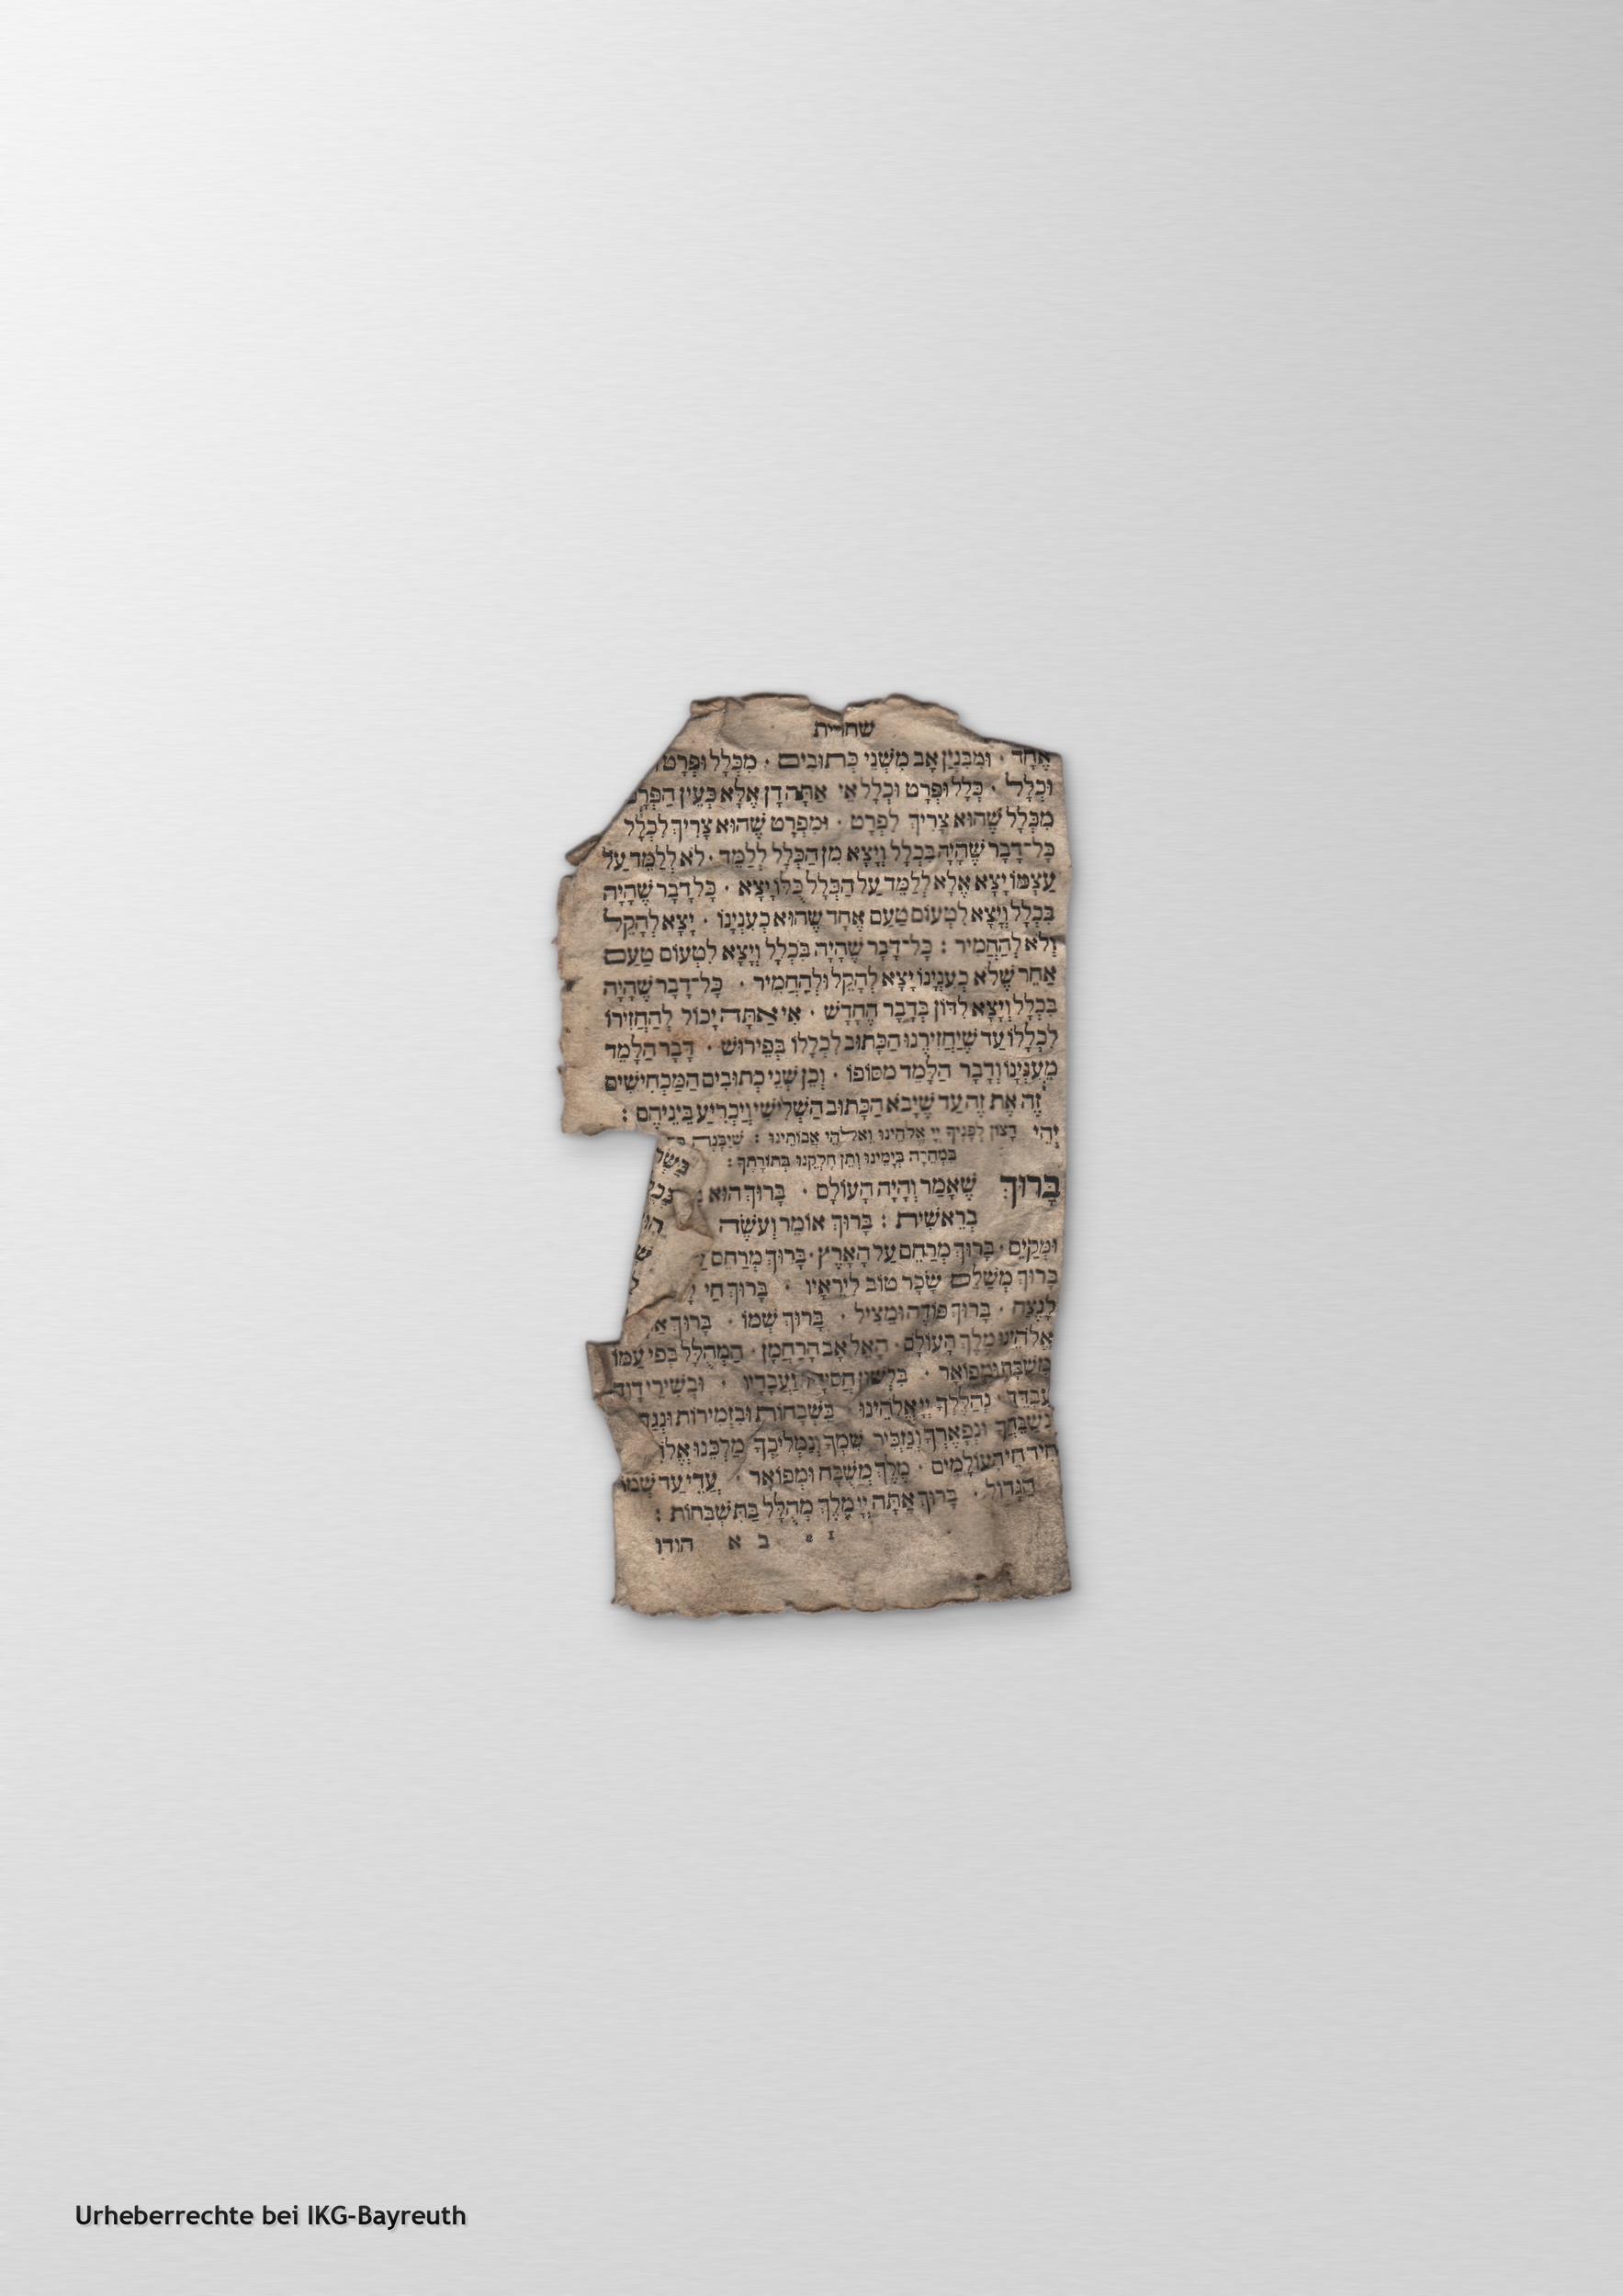 שחרית
אֶחָד · וּמִבִּנְיַן אָב מִשְּׁנֵי כְּתוּבִים · מִכְּלָל וּפְרָט
וּכְלָל · כְּלָל וּפְרָט וּכְלָל אִי אַתָּה דָן אֶלָּא כְּעֵין הַפְּרָט
מִכְּלָל שֶׁהוּא צָרִיךְ לִפְרָט · וּמִפְּרָט שֶׁהוּא צָרִיךְ לִכְלָל
כָּל־דָּבָר שֶׁהָיָה בִּכְלָל וְיָצָא מִן הַכְּלָל לְלַמֵּד · לֹא לְלַמֵּד עַל
עַצְמוֹ יָצָא אֶלָּא לְלַמֵּד עַל הַכְּלָל כֻּלּוֹ יָצָא · כָּל דָבָר שֶׁהָיָה
בִּכְלָל וְיָצָא לִטְעוֹם טַעַם אֶחָד שֶׁהוּא כְעִנְיָנוֹ · יָצָא לְהָקֵל
וְלֹא לְהַחֲמִיר : כָּל־דָּבָר שֶׁהָיָה בִּכְלָל וְיָצָא לִטְעוֹם טַעַם
אַחֵר שֶׁלֹּא כְעִנְיָנוֹ יָצָא לְהָקֵל וּלְהַחֲמִיר · כָּל־דָּבָר שֶׁהָיָה
בִּכְלָל וְיָצָא לִדּוֹן בְּדָבָר הֶחָדָשׁ · אִי אַתָּה יָכוֹל לְהַחֲזִירוֹ
לִכְלָלוֹ עַד שֶׁיַּחֲזִירֶנּוּ הַכָּתוּב לִכְלָלוֹ בְּפֵירוּשׁ · דָּבָר הַלָּמֵד
מֵעִנְיָנוֹ וְדָבָר הַלָּמֵד מִסּוֹפוֹ · וְכֵן שְׁנֵי כְתוּבִים הַמַּכְחִישִׁים
זֶה אֶת זֶה עַד שֶׁיָּבֹא הַכָּתוּב הַשְּׁלִישִׁי וְיַכְרִיעַ בֵּינֵיהֶם :
יְהִי רָצוֹן לְפָנֶיךָ יְיָ אֱלֹהֵינוּ וֵאלֹהֵי אֲבוֹתֵינוּ : שֶׁיִּבָּנֶה
בִּמְהֵרָה בְּיָמֵינוּ וְתֵן חֶלְקֵנוּ בְּתוֹרָתֶךָ :
בָּרוּךְ שֶׁאָמַר וְהָיָה הָעוֹלָם · בָּרוּךְ הוּא
בְרֵאשִׁית : בָּרוּךְ אוֹמֵר וְעֹשֶׂה
וּמְקַיֵּם · בָּרוּךְ מְרַחֵם עַל הָאָרֶץ · בָּרוּךְ מְרַחֵם
בָּרוּךְ מְשַׁלֵּם שָׂכָר טוֹב לִירֵאָיו · בָּרוּךְ חַי
לָנֶצַח · בָּרוּךְ פּוֹדֶה וּמַצִּיל · בָּרוּךְ שְׁמוֹ · בָּרוּךְ
אֱלֹהֵינוּ מֶלֶךְ הָעוֹלָם · הָאֵל אָב הָרַחֲמָן · הַמְהֻלָּל בְּפִי עַמּוֹ
מְשֻׁבָּח וּמְפוֹאָר · בִּלְשׁוֹן חֲסִידָיו וַעֲבָדָיו · וּבְשִׁירֵי דָוִד
עַבְדֶּךָ · נְהַלֶּלְךָ יְיָ אֱלֹהֵינוּ בִּשְׁבָחוֹת וּבִזְמִירוֹת
נְשַׁבֵּחֲךָ וּנְפָאֶרְךָ וְנַזְכִּיר שִׁמְךָ וְנַמְלִיכְךָ מַלְכֵּנוּ
יָחִיד חֵי הָעוֹלָמִים · מֶלֶךְ מְשֻׁבָּח וּמְפוֹאָר · עֲדֵי עַד שְׁמוֹ
הַגָּדוֹל · בָּרוּךְ אַתָּה יְיָ מֶלֶךְ מְהֻלָּל בַּתִּשְׁבָּחוֹת :
ב א הודו
Urheberrechte bei IKG-Bayreuth